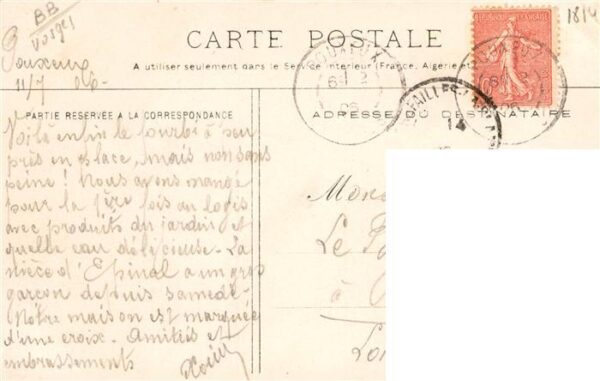 BB
Vosges
1814
CARTE POSTALE
A utiliser seulement dans le Service Intérieur (France, Algérie et
Pouxeux
11/7 06
PARTIE RÉSERVÉE A LA CORRESPONDANCE
ADRESSE DU DESTINATAIRE
POUXEUX
14
Voilà enfin le fourbi à peu
près en place, mais non sans
peine! Nous avons mangé
pour la 1ère fois au logis
avec produits du jardin et
quelle eau délicieuse. La
nièce d'Epinal a un gros
garçon depuis samedi.
Notre maison est marquée
d'une croix. Amitiés et
embrassements
Mons
Le
à